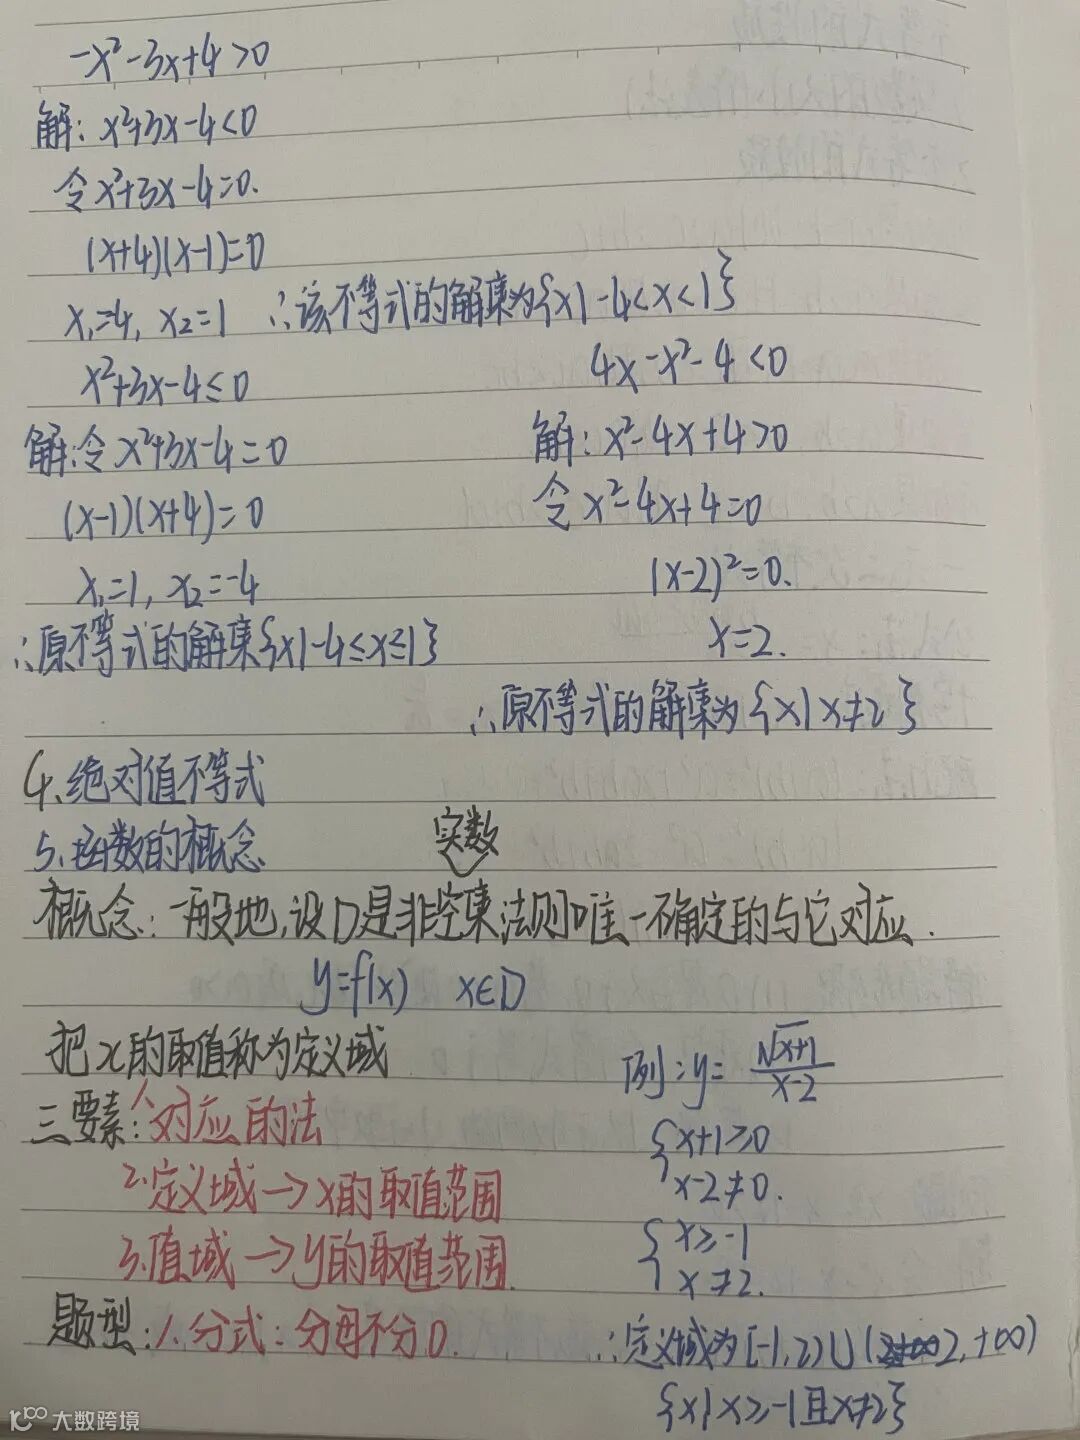 -x²-3x+4>0
解: x²+3x-4<0
令x²+3x-4=0.
(x+4)(x-1)=0
x₁=4, x₂=1 ∴该不等式的解集为{x|-4<x<1}
x²+3x-4≤0
解:令x²+3x-4=0
(x-1)(x+4)=0
x₁=1, x₂=-4
∴原不等式的解集{x|-4≤x≤1}
4x-x²-4<0
解: x²-4x+4>0
令x²-4x+4=0
(x-2)²=0.
x=2.
∴原不等式的解集为{x|x≠2}
4、绝对值不等式
5、函数的概念
实数
概念: 一般地,设D是非空集法则唯一确定的与它对应.
y=f(x) x∈D
把x的取值称为定义域
三要素:1.对应的法
2.定义域→x的取值范围
3.值域→y的取值范围.
题型:1.分式:分母不分0.
例:y=√x+1/x-2
{x+1≥0
x-2≠0.
{x≥-1
x≠2.
∴定义域为[-1,2)∪(2,+∞)
{x|x≥-1且x≠2}
大数跨境